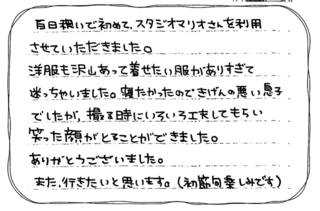 百日祝いで初めて、スタジオマリオさんを利用
させていただきました。
洋服も沢山あって着せたい服がありすぎて
迷っちゃいました。寝たかったのできげんの悪い息子
でしたが、撮る時にいろいろ工夫してもらい
笑った顔がとることができました。
ありがとうございました。
また、行きたいと思います。(初節句楽しみです)